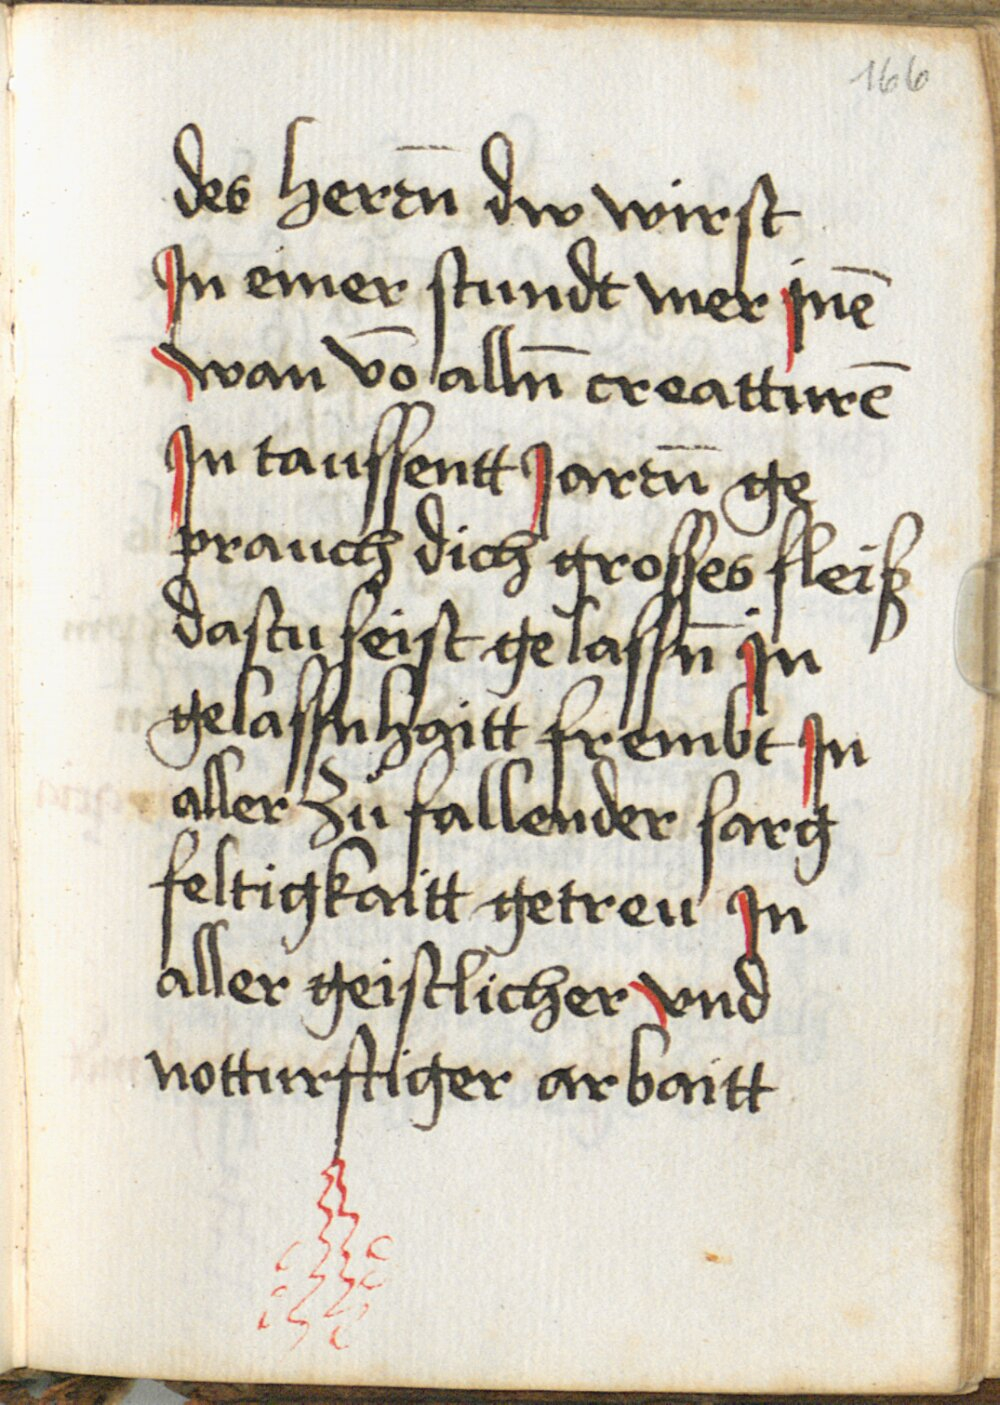 166
des herrn̄ dw wirst
Jn einer stundt mer jnē
wan vō alln̄ creatturē
Jn taussentt Jarn̄ ge
prauch dich grosses fleiß
dastu seist gelassn̄ jn
gelassnhaitt frembt Jn
aller zu fallender sarg
feltigkaitt getreu Jn
aller geistlicher vnd
notturftiger arbaitt